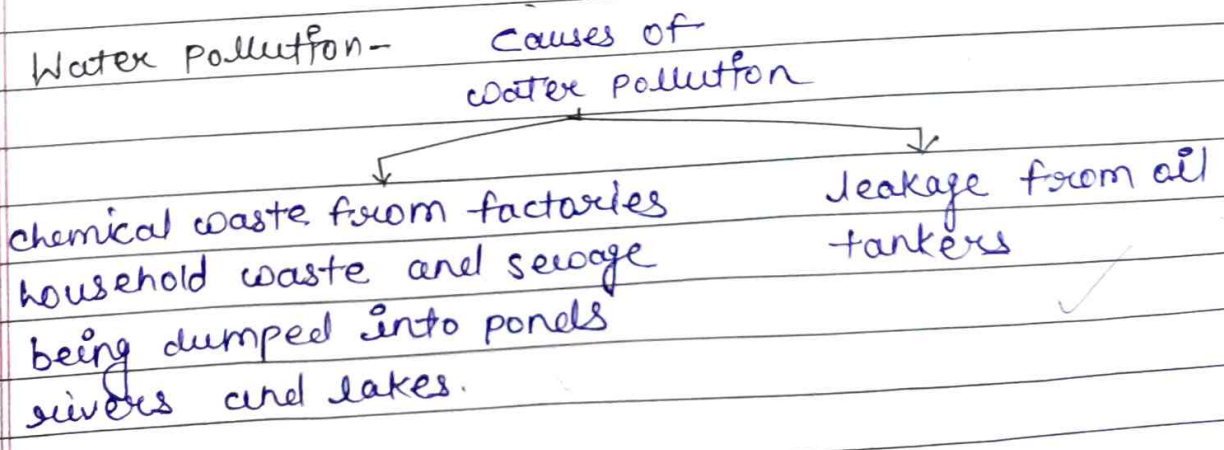 Water Pollution- Causes of
water pollution
chemical waste from factories
household waste and sewage
being dumped into ponds
rivers and lakes.
leakage from oil
tankers